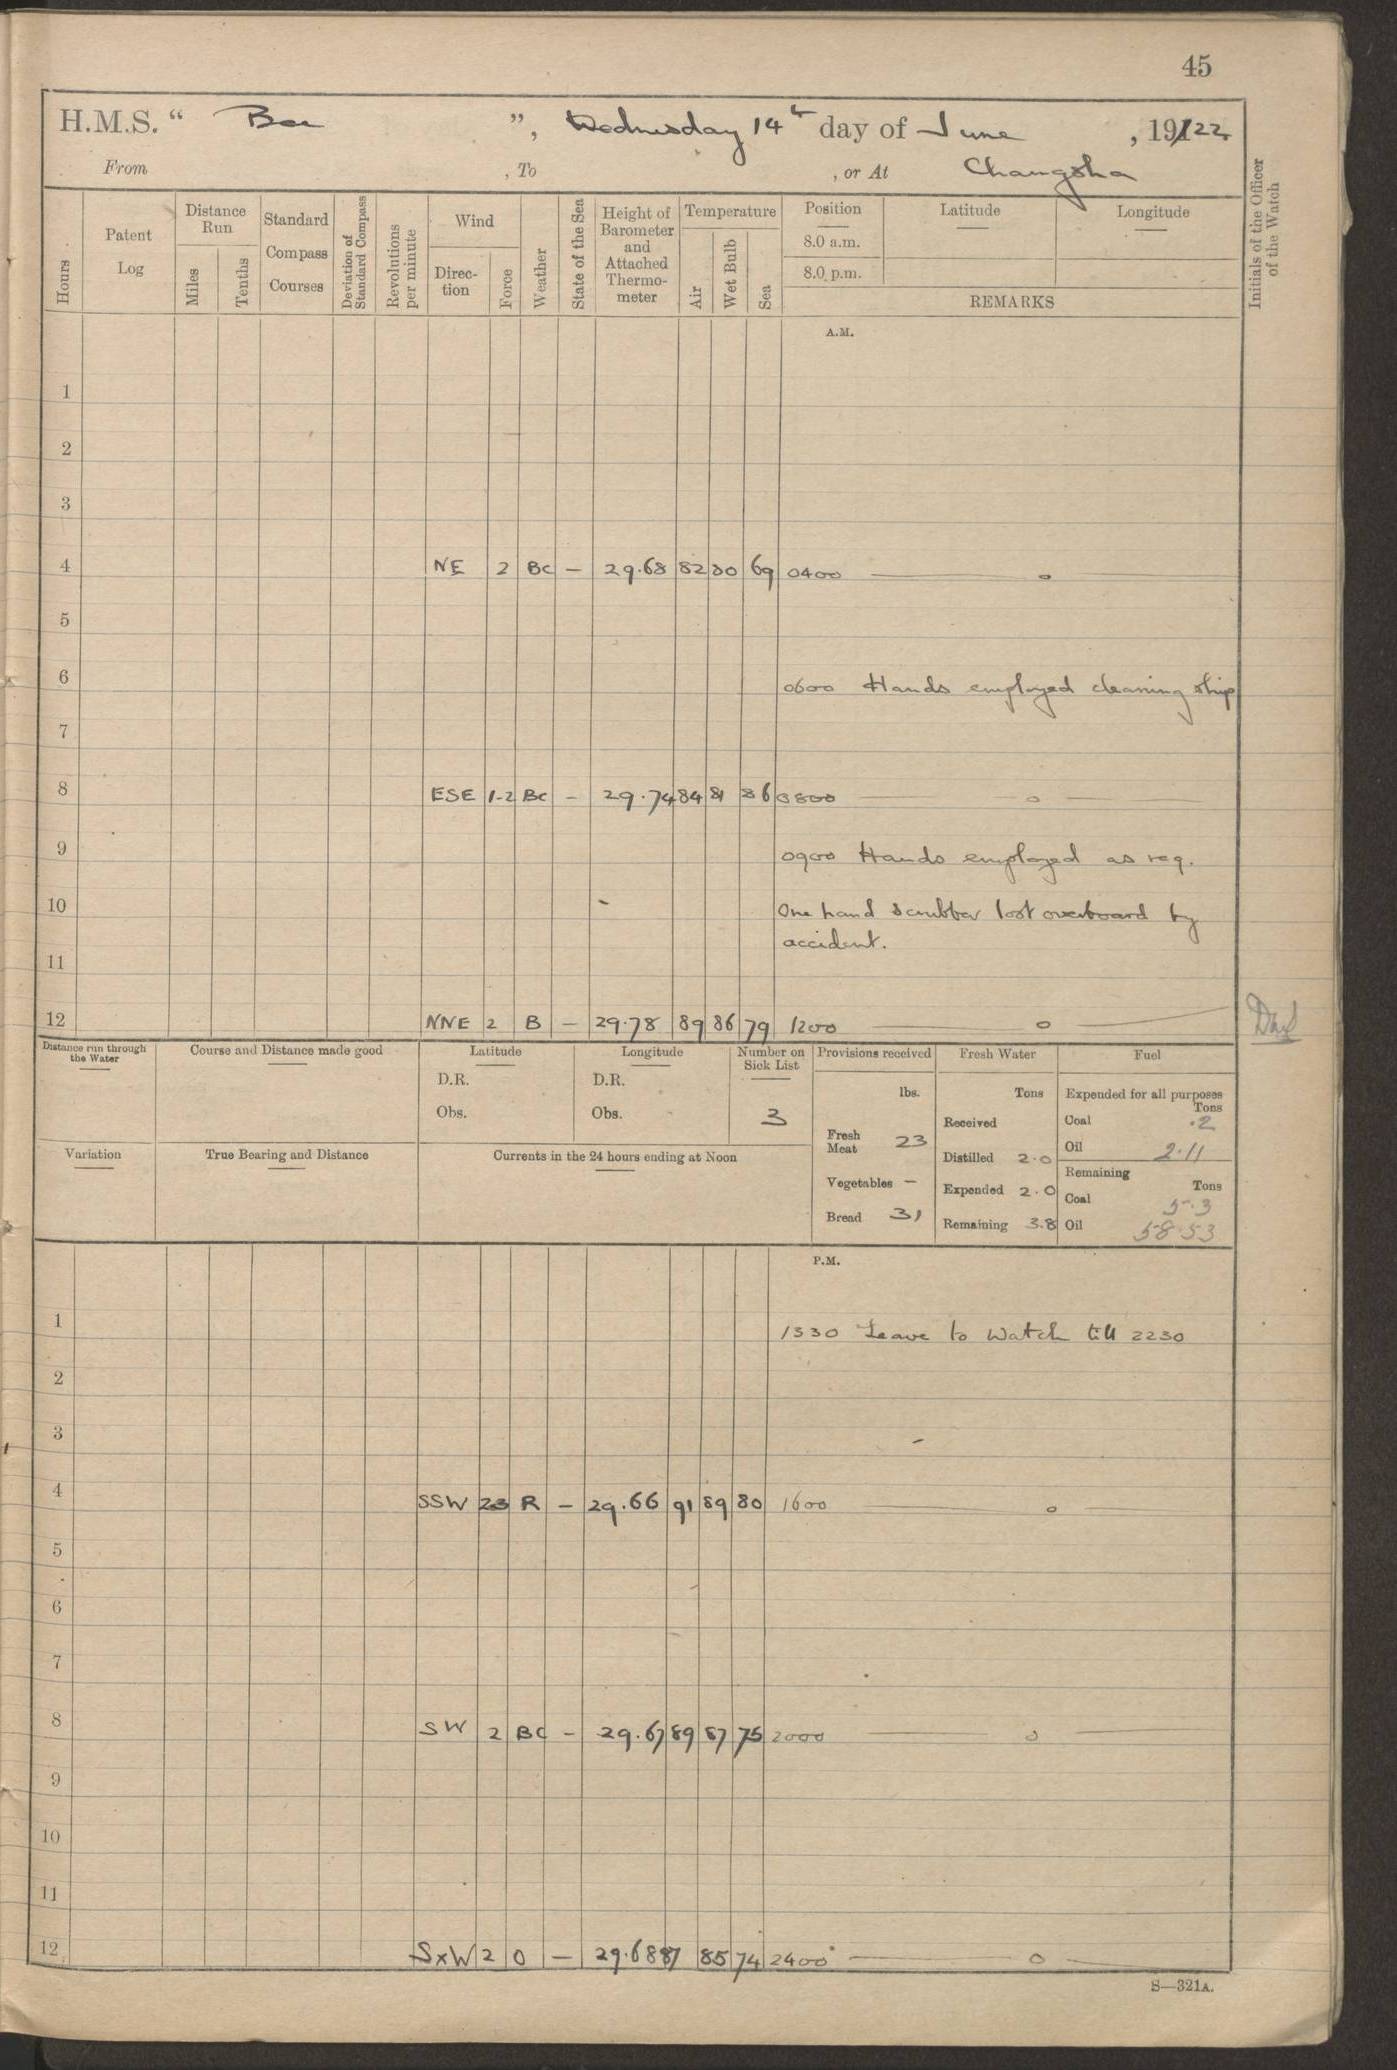 45
H.M.S. " Bee ", Wednesday 14th day of June , 19122
From , To , or At Changsha
Hours
Patent Log
Distance Run
Miles
Tenths
Standard Compass Courses
Deviation of Standard Compass
Revolutions per minute
Wind
Direc-tion
Force
Weather
State of the Sea
Height of Barometer and Attached Thermo-meter
Temperature
Air
Wet Bulb
Sea
Position
8.0 a.m.
8.0 p.m.
Latitude
Longitude
REMARKS
Initials of the Officer of the Watch
A.M.
1
2
3
4 NE 2 BC – 29.68 82 80 69 0400 —— o
5
6 0600 Hands employed cleaning ship
7
8 ESE 1-2 BC – 29.74 84 81 86 0800 —— o ——
9 0900 Hands employed as req.
10 One hand scrubber lost overboard by
accident.
11
12 NNE 2 B – 29.78 89 86 79 1200 —— o ——
Distance run through the Water
Course and Distance made good
Latitude
D.R.
Obs.
Longitude
D.R.
Obs.
Number on Sick List
3
Provisions received
lbs.
Fresh Meat 23
Vegetables –
Bread 31
Fresh Water
Tons
Received
Distilled 2.0
Expended 2.0
Remaining 3.8
Fuel
Expended for all purposes
Tons
Coal .2
Oil 2.11
Remaining
Tons
Coal 5.3
Oil 58.53
Variation
True Bearing and Distance
Currents in the 24 hours ending at Noon
P.M.
1 1330 Leave to Watch till 2230
2
3
4 SSW 23 R – 29.66 91 89 80 1600 —— o ——
5
6
7
8 SW 2 BC – 29.67 89 87 75 2000 —— o
9
10
11
12 SxW 2 O – 29.68 87 85 74 2400 —— o ——
S—321A.